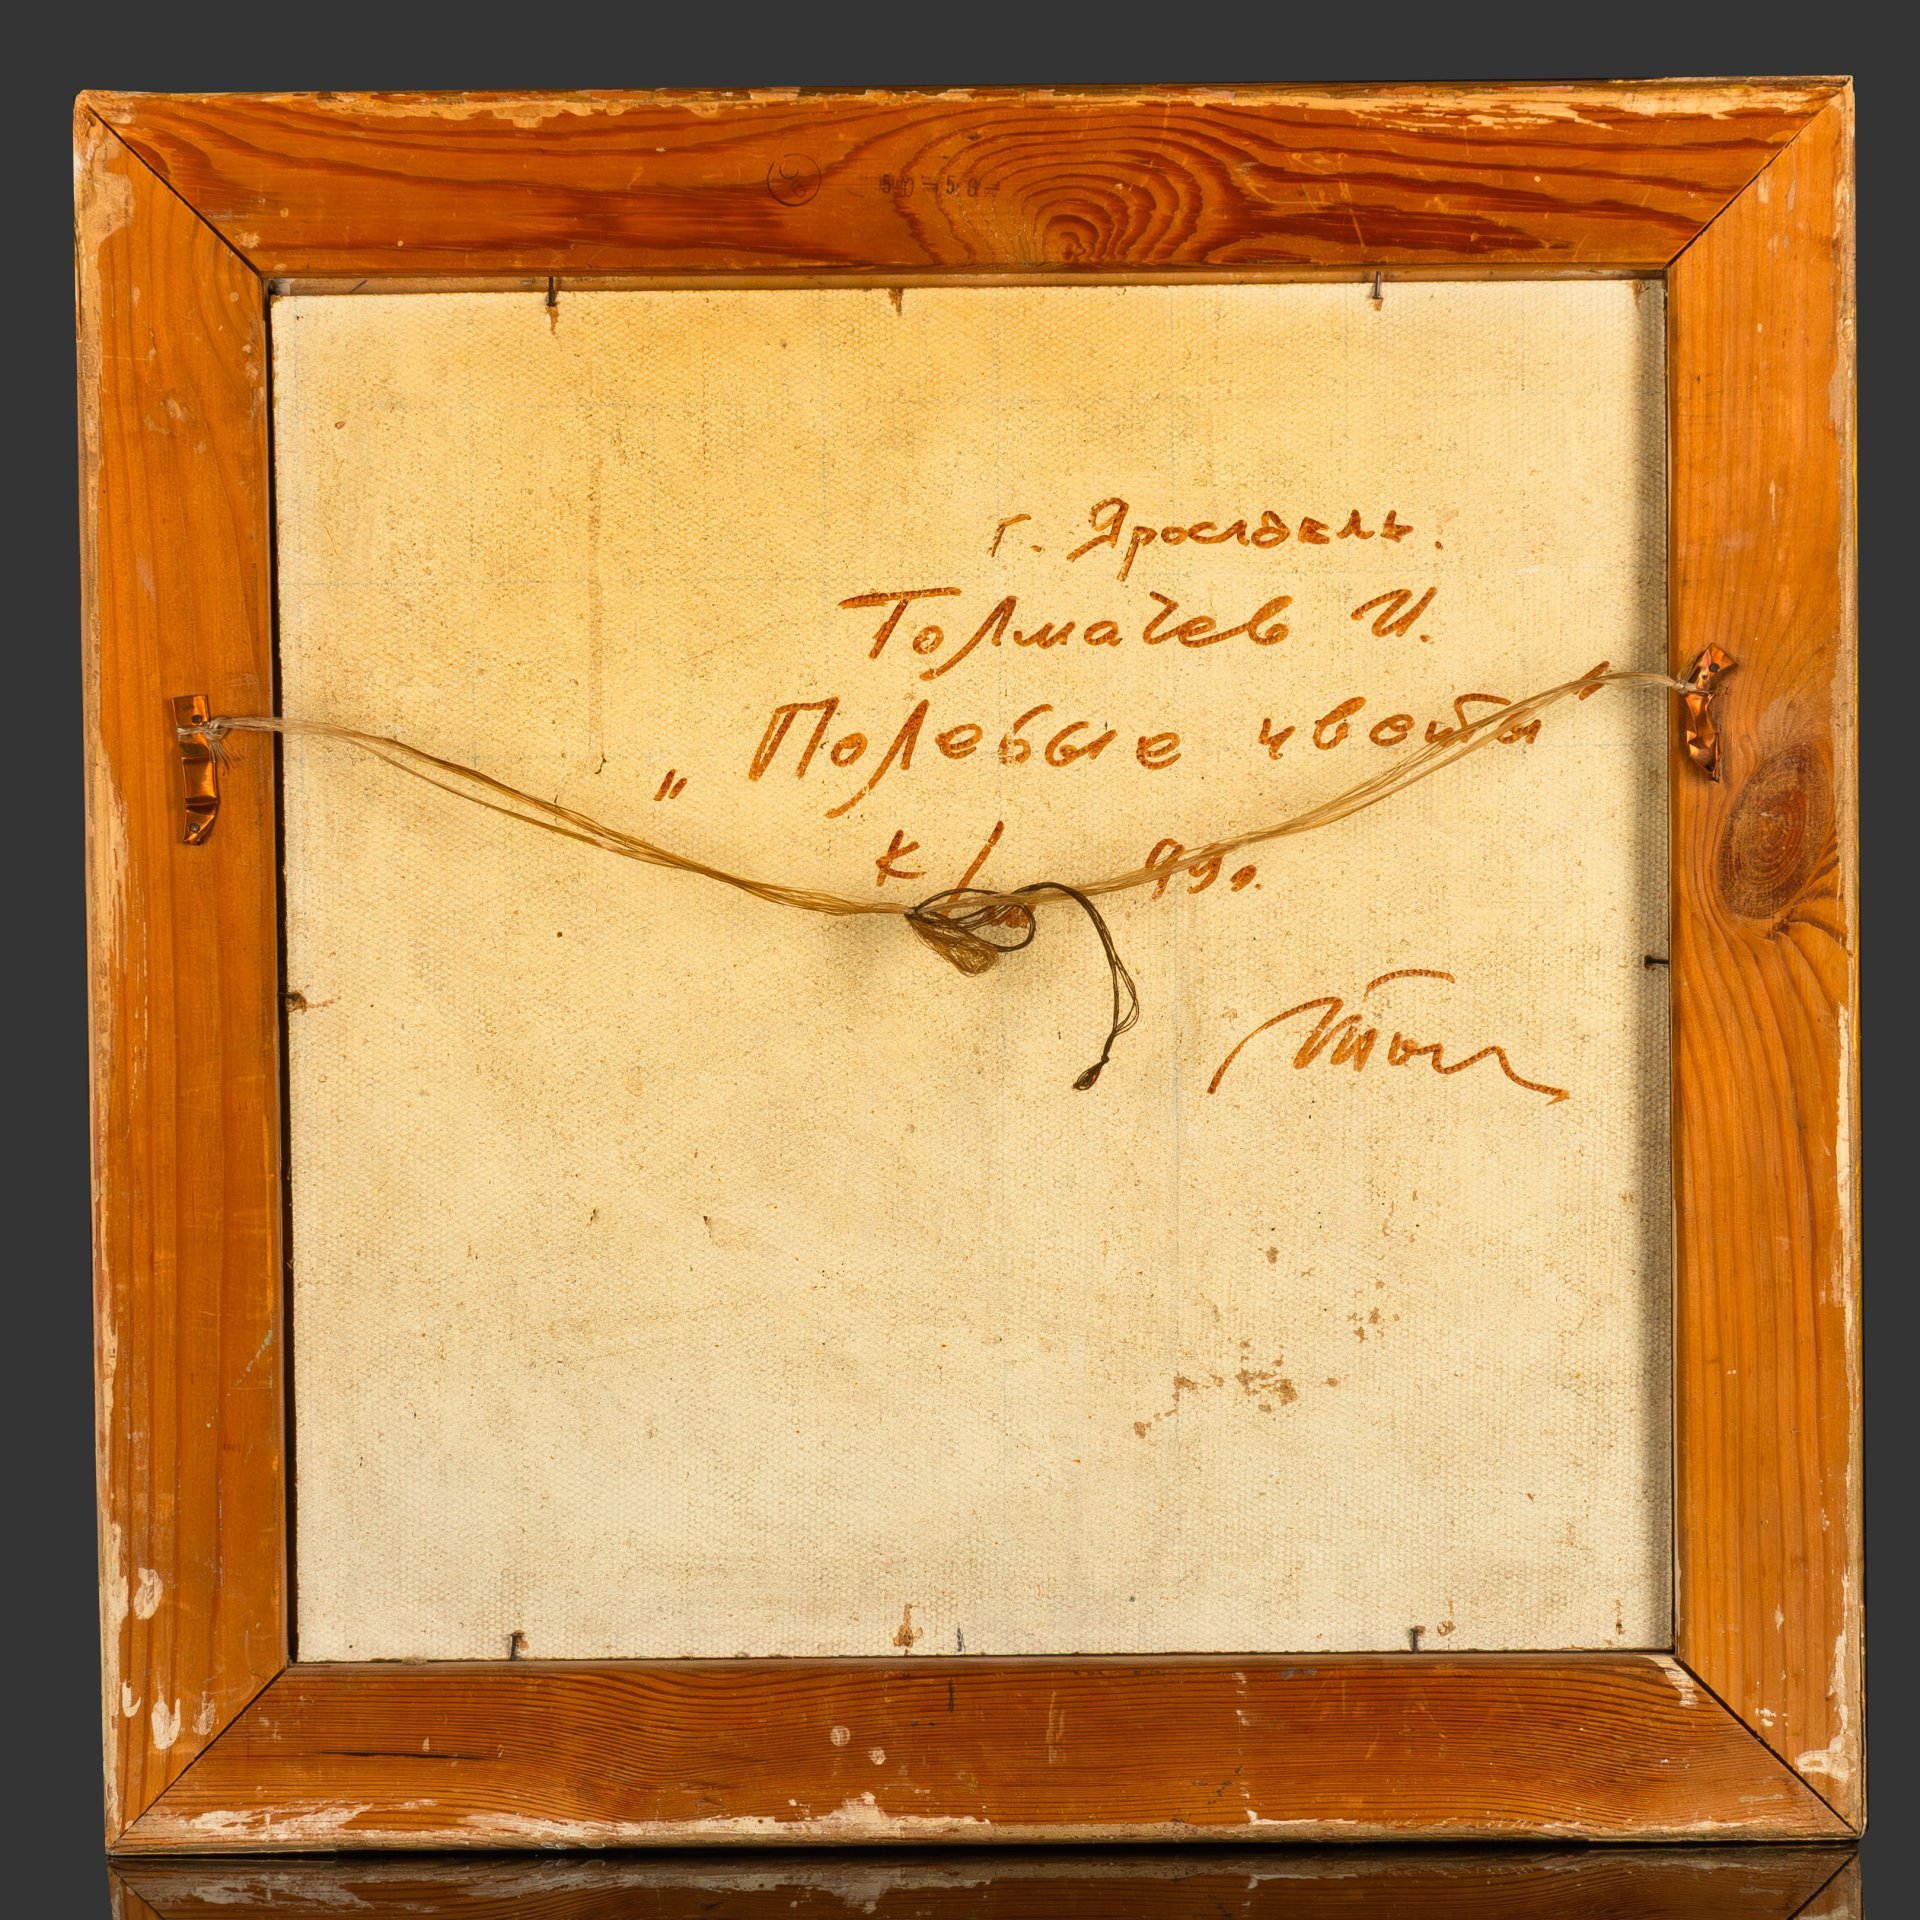 50-50-
г. Ярославль.
Толмачев И.
„Полевые цветы"
к/ 99г.